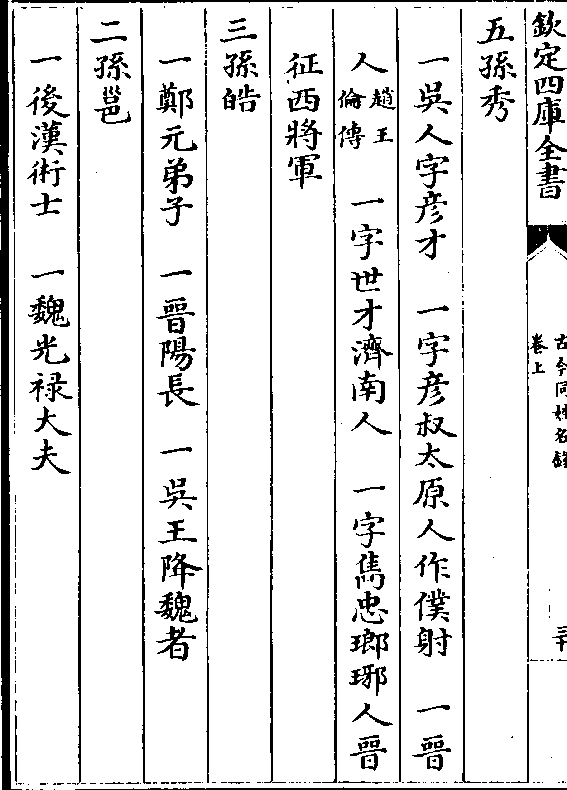 欽定四庫全書
古今同姓名錄
卷上
三十
五孫秀
一吳人字彦才　一字彦叔太原人作僕射　一晉
人趙王倫傳　一字世才濟南人　一字雋忠瑯琊人晉
征西將軍
三孫皓
一鄭元弟子　一晉陽長　一吳王降魏者
二孫邕
一後漢術士　一魏光禄大夫